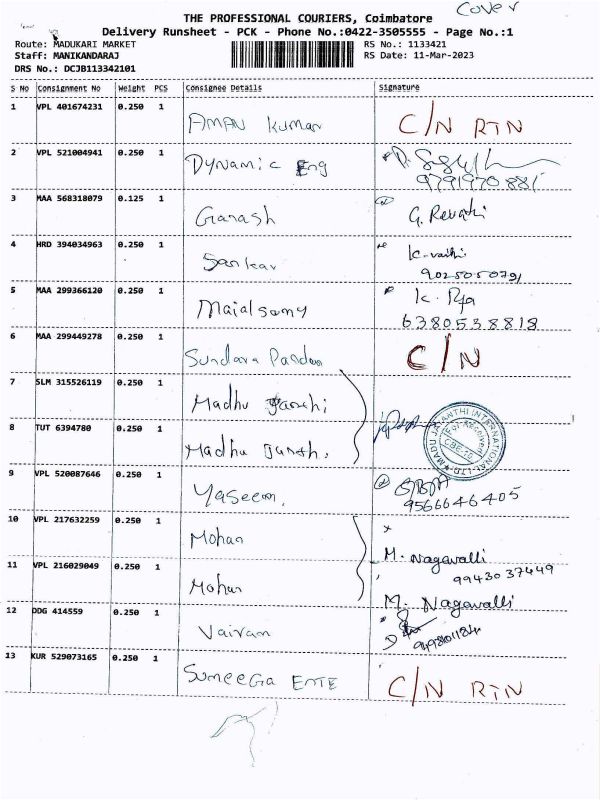 Cover
THE PROFESSIONAL COURIERS, Coimbatore
Delivery Runsheet - PCK - Phone No.:0422-3505555 - Page No.:1
Route: MADUKARI MARKET
RS No.: 1133421
Staff: MANIKANDARAJ
RS Date: 11-Mar-2023
DRS No.: DCJB113342101
S No Consignment No Weight PCS Consignee Details Signature
1 VPL 401674231 0.250 1 AMAN Kumar C/N RTN
2 VPL 521004941 0.250 1 Dynamic Eng
9791970881
3 MAA 568318079 0.125 1 Ganash G. Revathi
4 HRD 394034963 0.250 1 Sankar K. vaithi
9025050791
5 MAA 299366120 0.250 1 Maialsamy K.
6380538818
6 MAA 299449278 0.250 1 Sundara Pandan C/N
7 SLM 315526119 0.250 1 Madhu
8 TUT 6394780 0.250 1 Madhu
MADU JAYANTHI INTERNATIONAL
9 VPL 520087646 0.250 1 Yaseem.
9566646405
10 VPL 217632259 0.250 1 Mohan M. Nagavalli
9943037449
11 VPL 216029049 0.250 1 Mohan M. Nagavalli
12 DDG 414559 0.250 1 Vairam
13 KUR 529073165 0.250 1 Sumeega ENTE C/N RTN